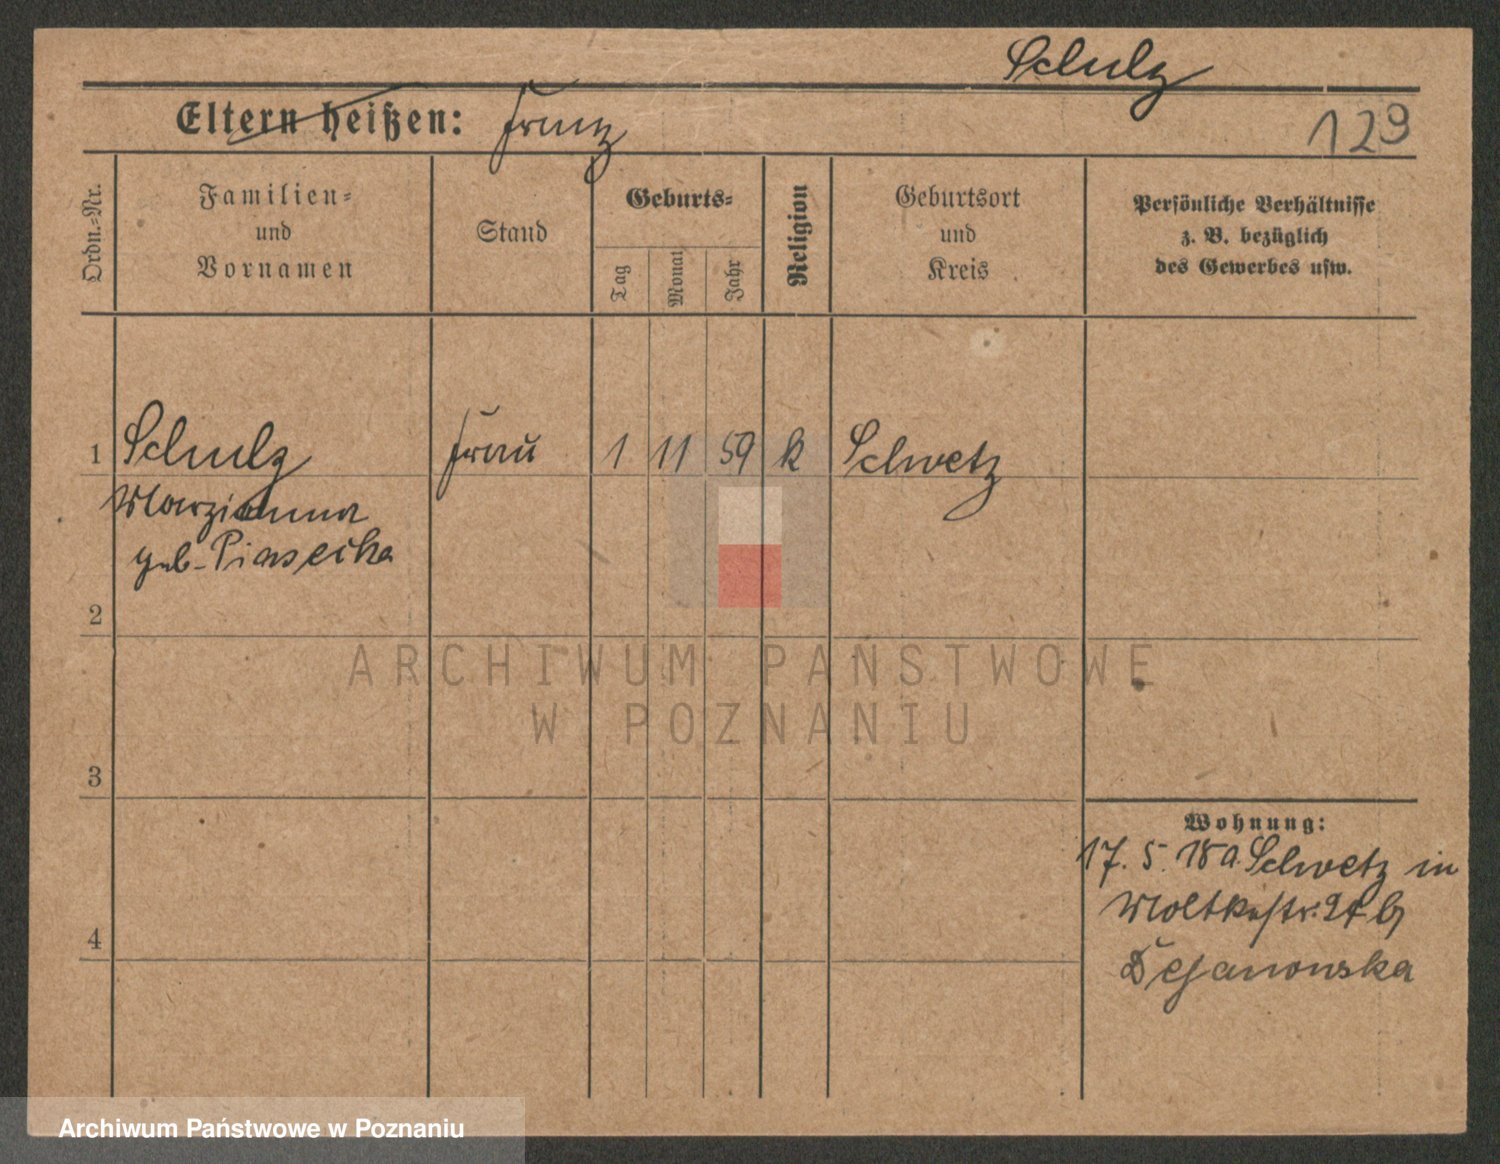 Schulz
Eltern heißen: Franz
129
Ordn.-Nr.
Familien-
und
Vornamen
Stand
Geburts-
Tag
Monat
Jahr
Religion
Geburtsort
und
Kreis
Persönliche Verhältnisse
z. B. bezüglich
des Gewerbes usw.
1 Schulz Frau 1 11 59 k Schwetz
Marzianna
geb. Piasecka
2
ARCHIWUM PAŃSTWOWE
W POZNANIU
3
Wohnung:
17. 5. 18 a. Schwetz in
Moltkestr. 24 b
4
Archiwum Państwowe w Poznaniu